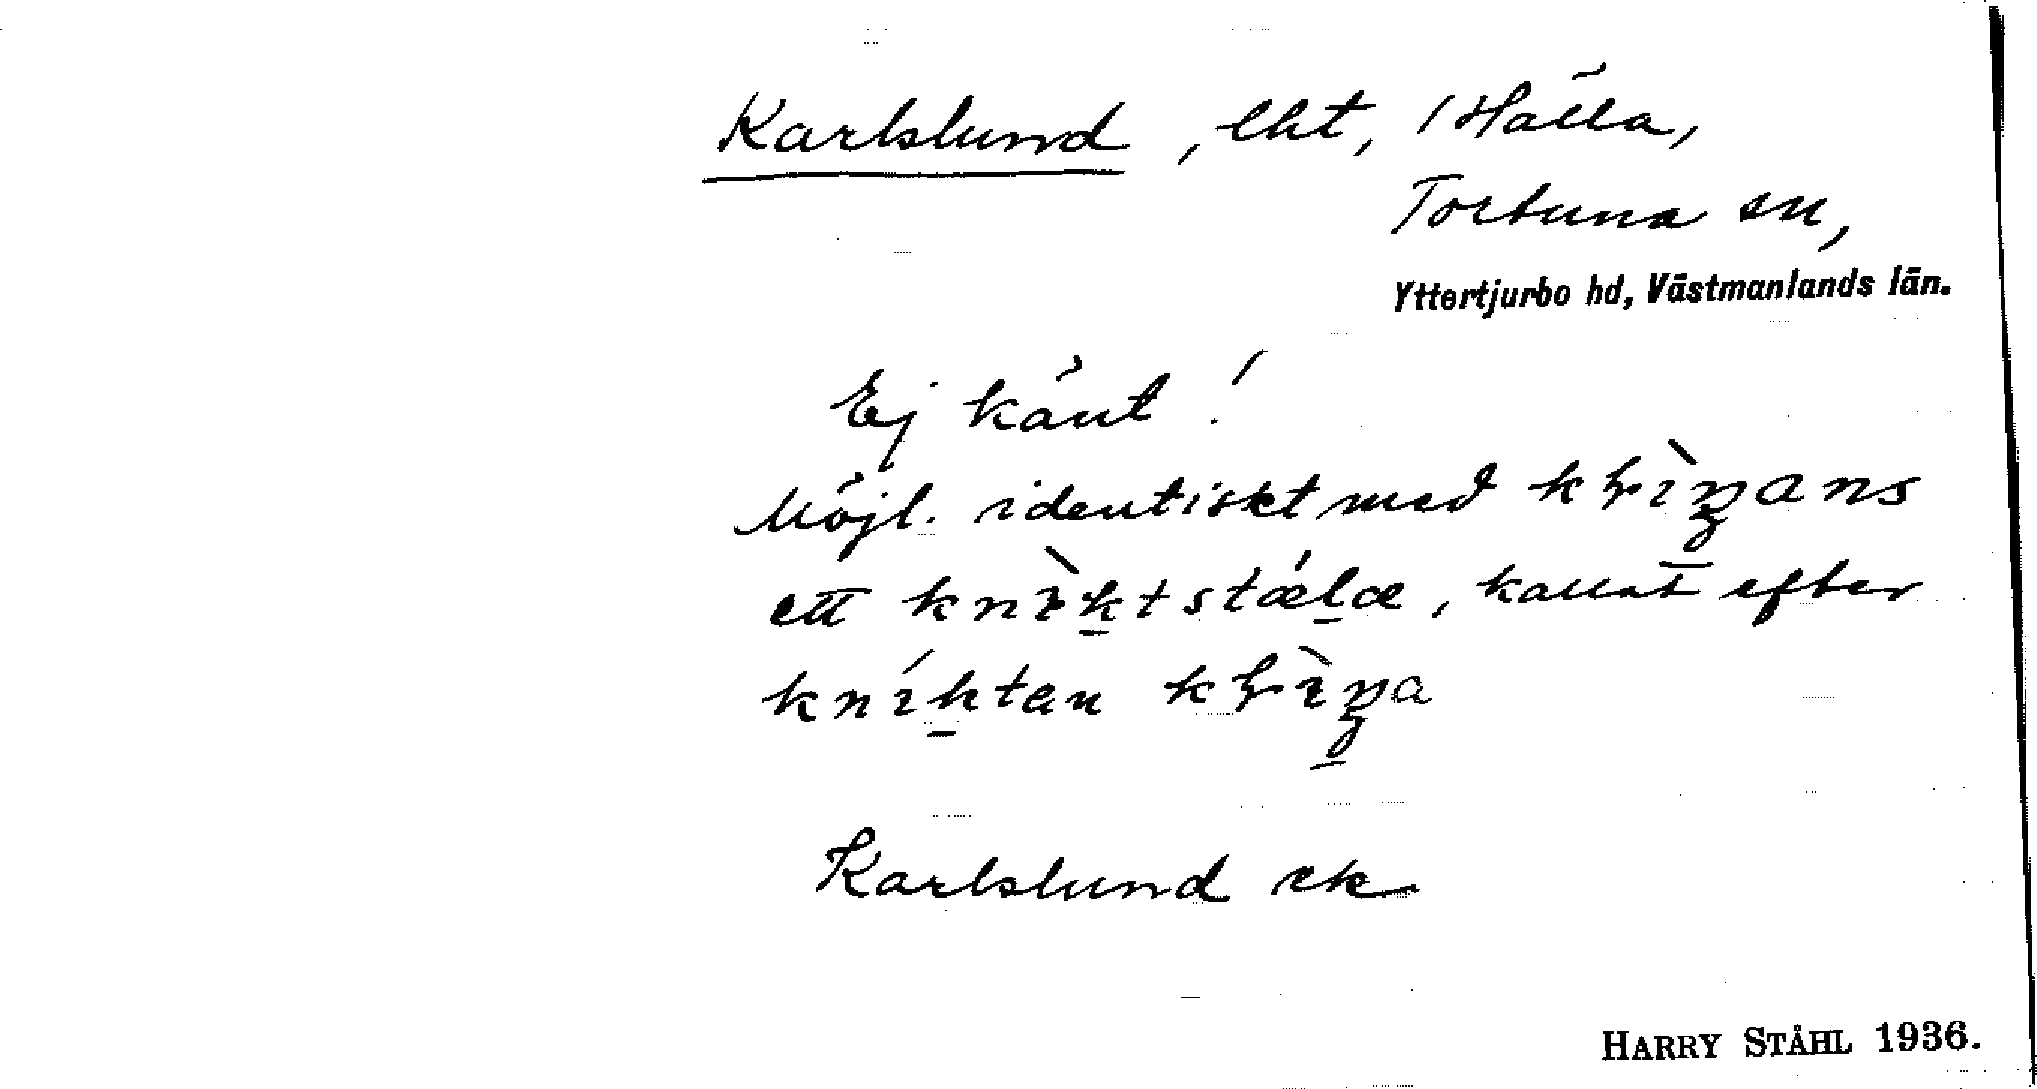 Karlslund, lht, i Hälla,
Tortuna sn,
Yttertjurbo hd, Västmanlands län.
Ej känt!
Möjl. identiskt med
ett knìktstælæ, kallat efter
kníktən
Karlslund ek
HARRY STÅHL 1936.